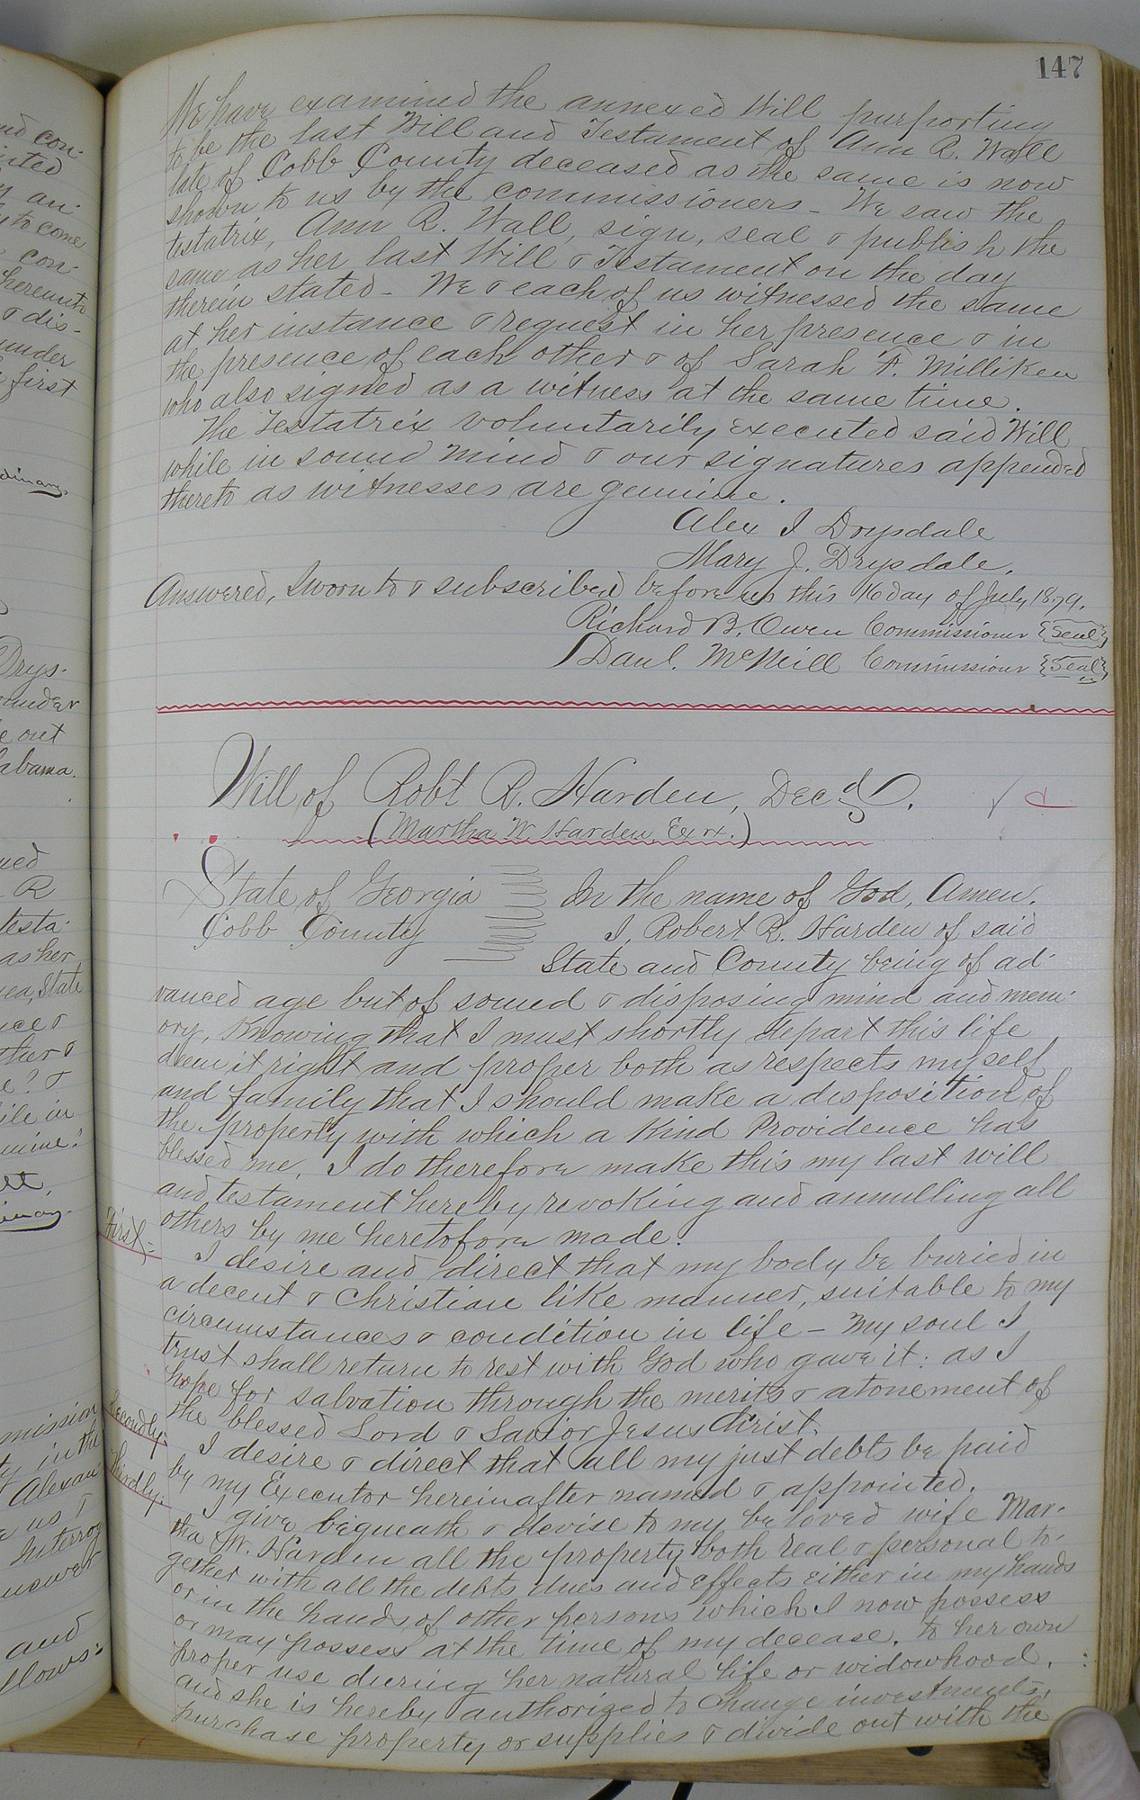 147
We have examined the annexed Will purporting
to be the last Will and Testament of Ann R. Wall
late of Cobb County deceased as the same is now
shown to us by the commissioners - We saw the
testatrix, Ann R. Wall, sign, seal & publish the
same as her last Will & Testament on the day
therein stated - We & each of us witnessed the same
at her instance & request in her presence & in
the presence of each other & of Sarah F. Milliken
who also signed as a witness at the same time.
The Testatrix voluntarily executed said Will
while in sound mind & our signatures appended
thereto as witnesses are genuine.
Alex J Drysdale
Mary J. Drysdale,
Answered, Sworn to & subscribed before us this 16 day of July 1879.
Richard B. Owen Commissioner {Seal}
Danl. McNeill Commissioner {Seal}
Will of Robt R. Harden, Decd.
(Martha W. Harden, Exrx.)
State of Georgia
Cobb County
In the name of God, Amen.
I, Robert R. Harden of said
State and County being of ad-
vanced age but of sound & disposing mind and mem-
ory, Knowing that I must shortly depart this life
deem it right and proper both as respects myself
and family that I should make a disposition of
the property with which a Kind Providence has
blessed me, I do therefore make this my last will
and testament hereby revoking and annulling all
others by me heretofore made.
First- I desire and direct that my body be buried in
a decent & Christian like manner, suitable to my
circumstances & condition in life - My soul I
trust shall return to rest with God who gave it: as I
hope for salvation through the merits & atonement of
the blessed Lord & Savior Jesus Christ.
Secondly. I desire & direct that all my just debts be paid
by my Executor hereinafter named & appointed.
Thirdly. I give bequeath & devise to my beloved wife Mar-
tha W. Harden all the property both real & personal to-
gether with all the debts dues and effects either in my hands
or in the hands of other persons which I now possess
or may possess at the time of my decease, to her own
proper use during her natural life or widowhood.
and she is hereby authorized to change investments,
purchase property or supplies & divide out with the
nd con-
to come
con-
herewith
& dis-
under
first
Drys-
under
e out
labama.
R
testa-
as her
State
ile in
mission
ty in the
Alexan-
us
Interrog
and
llows: